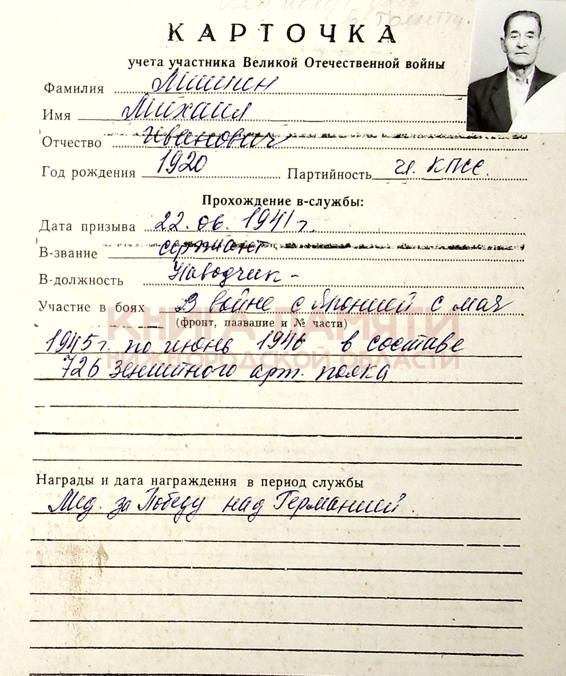 КАРТОЧКА
учета участника Великой Отечественной войны
Фамилия Мишин
Имя Михаил
Отчество Иванович
Год рождения 1920 Партийность чл. КПСС.
Прохождение в-службы:
Дата призыва 22.06.1941 г.
В-звание сержант
В-должность Наводчик -
Участие в боях В войне с Японией с мая
(фронт, название и № части)
1945 г. по июнь 1946 в составе
726 зенитного арт. полка
КНИГА ПАМЯТИ
НИЖЕГОРОДСКОЙ ОБЛАСТИ
Награды и дата награждения в период службы
Мед. за Победу над Германией.